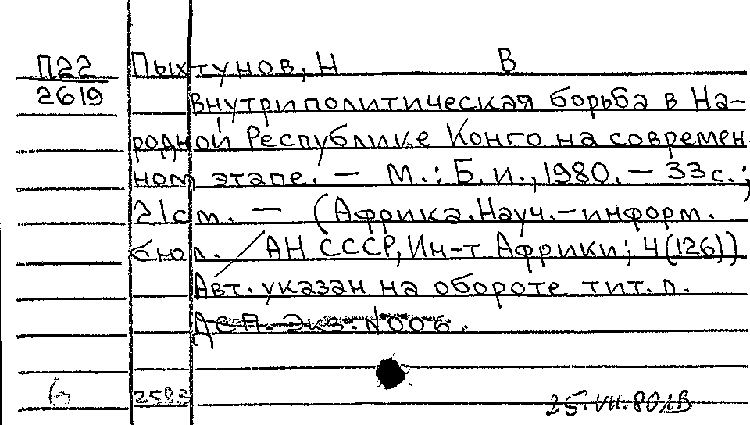 П22 Пыхтунов, Н В
2619 Внутриполитическая борьба в На-
родной Республике Конго на современ
ном этапе. — М.: Б.и., 1980. — 33с.;
21см. — (Африка. Науч.-информ.
бюл. / АН СССР, Ин-т Африки; 4(126))
Авт. указан на обороте тит. л.
6 25.VII.80